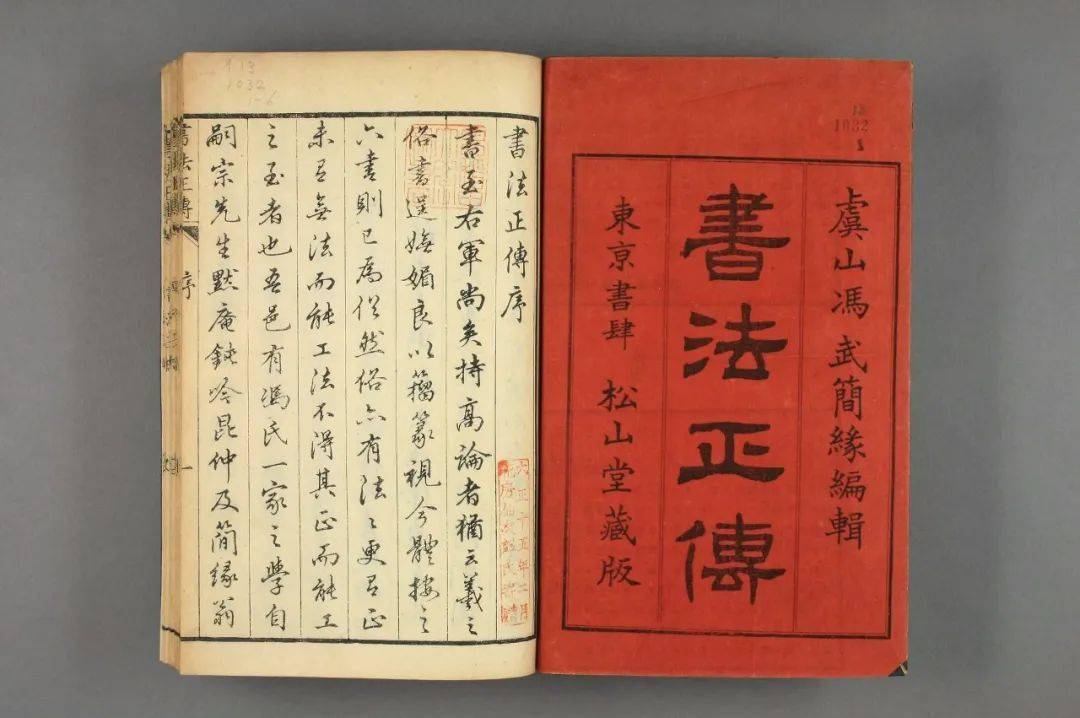 13
1032
1
虞山馮武簡緣編輯
書法正傳
東亰書肆 松山堂藏版
1032
1-6
書法正傳序
書至右軍尚矣持高論者猶云羲之
俗書逞嫵媚良以籀篆視今體接之
六書則已為俗然俗亦有法〻更有正
未有無法而能工法不得其正而能工
之至者也吾邑有馮氏一家之學自
嗣宗先生默庵鈍吟昆仲及簡緣翁
大正十五年二月
書法正傳 序 一